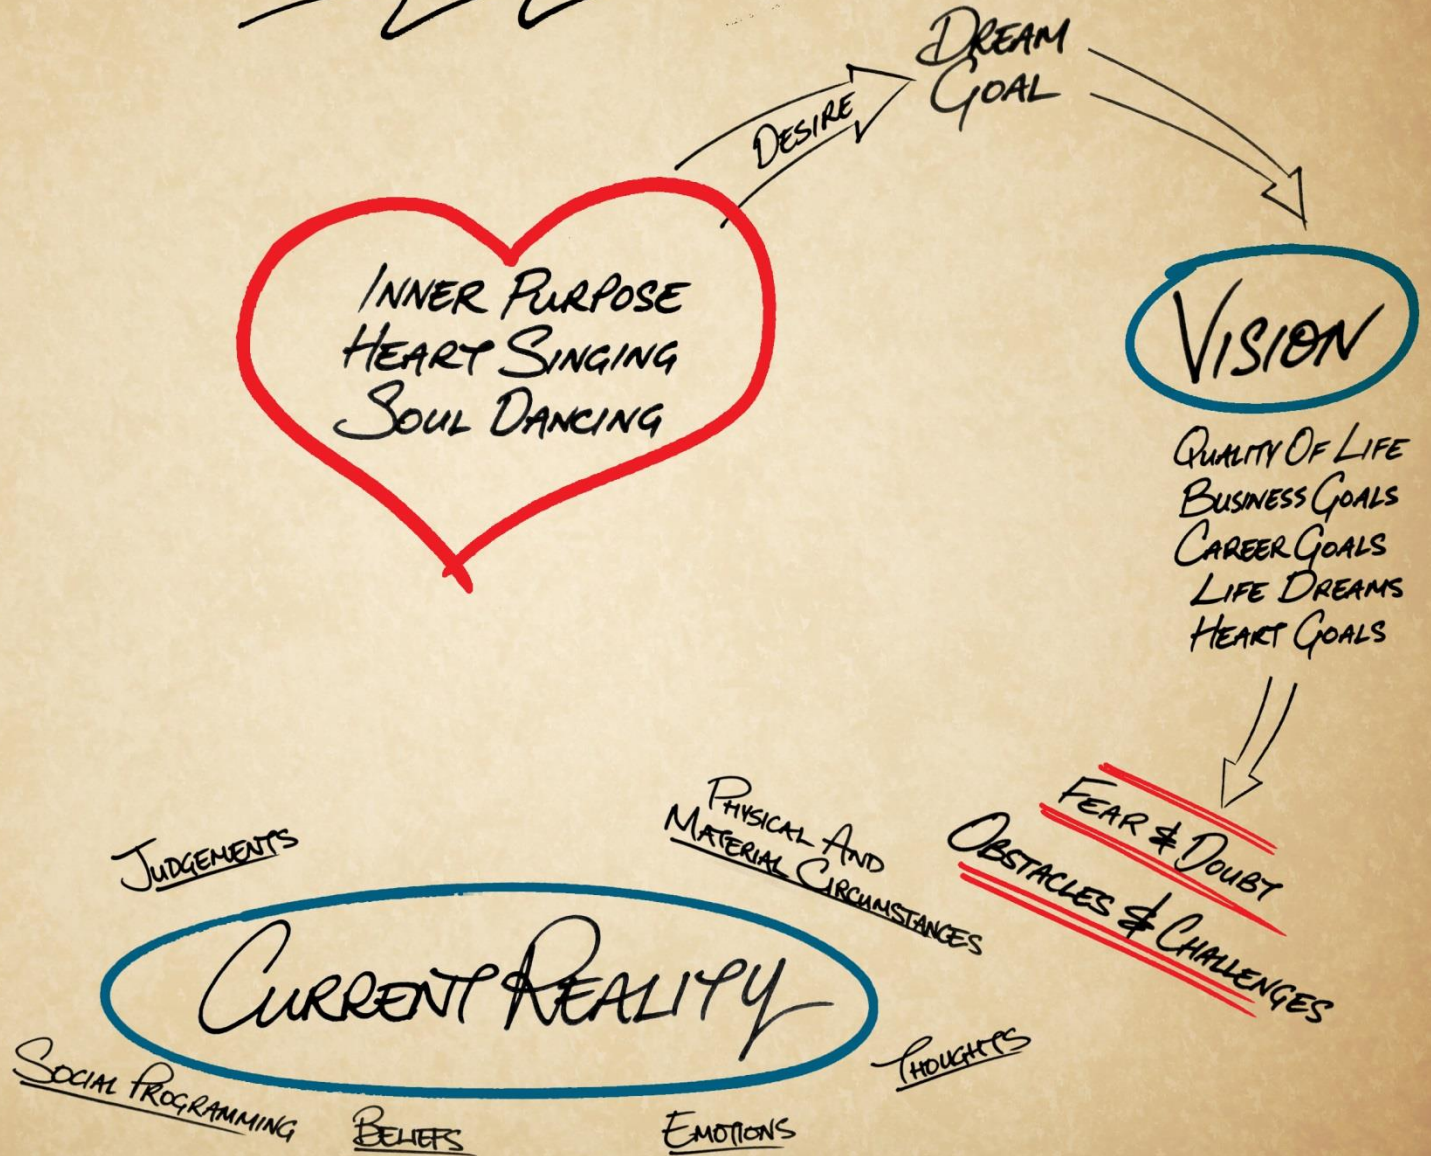 DREAM
GOAL
DESIRE
INNER PURPOSE
HEART SINGING
SOUL DANCING
VISION
QUALITY OF LIFE
BUSINESS GOALS
CAREER GOALS
LIFE DREAMS
HEART GOALS
FEAR & DOUBT
OBSTACLES & CHALLENGES
PHYSICAL AND
MATERIAL CIRCUMSTANCES
JUDGEMENTS
CURRENT REALITY
THOUGHTS
SOCIAL PROGRAMMING
BELIEFS
EMOTIONS